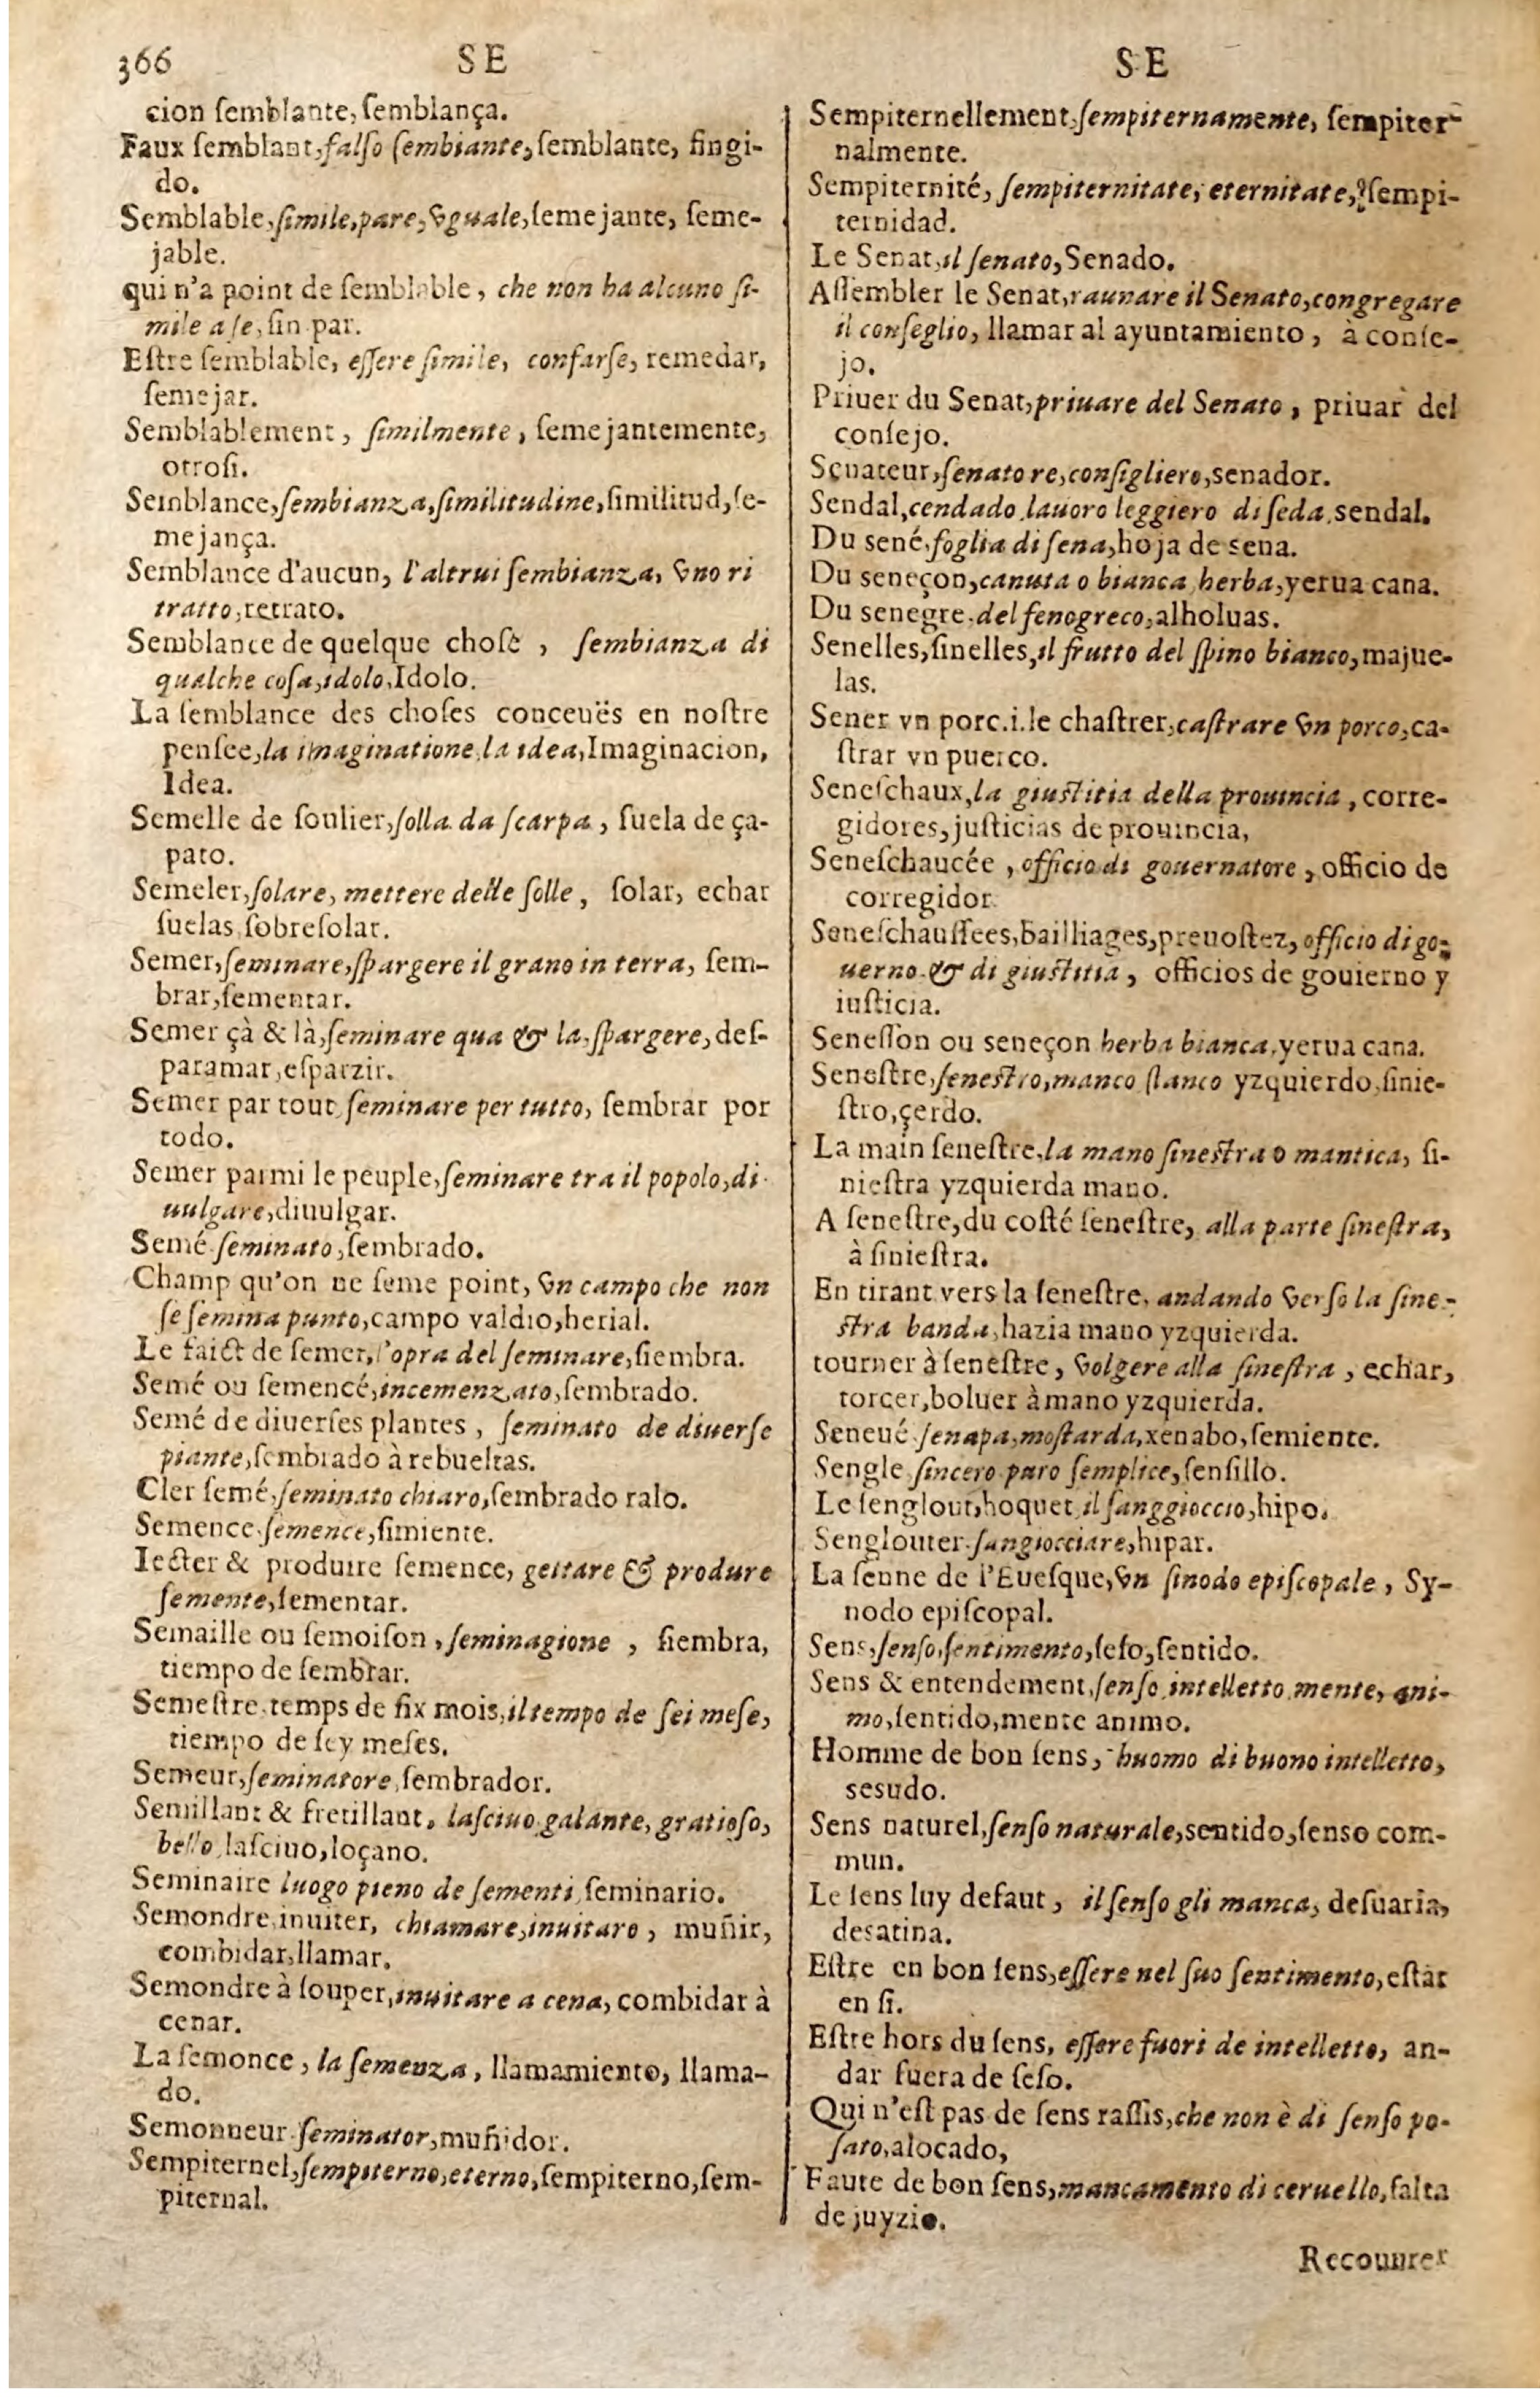 366 SE
cion ſemblante, ſemblança.
Faux ſemblant, falſo ſembiante, ſemblante, fingi-
do.
Semblable, ſimile, pare, vguale, ſemejante, ſeme-
jable.
qui n'a point de ſemblable, che non ha alcuno ſi-
mile a ſe, ſin par.
Eſtre ſemblable, eſſere ſimile, confarſe, remedar,
ſemejar.
Semblablement, ſimilmente, ſemejantemente,
otroſi.
Semblance, ſembianza, ſimilitudine, ſimilitud, ſe-
mejança.
Semblance d'aucun, l'altrui ſembianza, vno ri
tratto, retrato.
Semblance de quelque choſe, ſembianza di
qualche coſa, idolo, Idolo.
La ſemblance des choſes conceuës en noſtre
penſee, la imaginatione, la idea, Imaginacion,
Idea.
Semelle de ſoulier, ſolla da ſcarpa, ſuela de ça-
pato.
Semeler, ſolare, mettere delle ſolle, ſolar, echar
ſuelas ſobreſolar.
Semer, ſeminare, ſpargere il grano in terra, ſem-
brar, ſementar.
Semer çà & là, ſeminare qua & la, ſpargere, deſ-
paramar, eſparzir.
Semer par tout, ſeminare per tutto, ſembrar por
todo.
Semer parmi le peuple, ſeminare tra il popolo, di-
uulgare, diuulgar.
Semé, ſeminato, ſembrado.
Champ qu'on ne ſeme point, vn campo che non
ſe ſemina punto, campo valdio, herial.
Le faict de ſemer, l'opra del ſeminare, ſiembra.
Semé ou ſemencé, incemenzato, ſembrado.
Semé de diuerſes plantes, ſeminato de diuerſe
piante, ſembrado à rebueltas.
Cler ſemé, ſeminato chiaro, ſembrado ralo.
Semence, ſemence, ſimiente.
Iecter & produire ſemence, gettare & produre
ſemente, ſementar.
Semaille ou ſemoiſon, ſeminagione, ſiembra,
tiempo de ſembrar.
Semeſtre, temps de ſix mois, il tempo de ſei meſe,
tiempo de ſey meſes.
Semeur, ſeminatore, ſembrador.
Semillant & fretillant, laſciuo galante, gratioſo,
bello, laſciuo, loçano.
Seminaire luogo pieno de ſementi, ſeminario.
Semondre, inuiter, chiamare, inuitare, muñir,
combidar, llamar.
Semondre à ſouper, inuitare a cena, combidar à
cenar.
La ſemonce, la ſemenza, llamamiento, llama-
do.
Semonneur, ſeminator, muñidor.
Sempiternel, ſempiterno, eterno, ſempiterno, ſem-
piternal.
SE
Sempiternellement, ſempiternamente, ſempiter-
nalmente.
Sempiternité, ſempiternitate, eternitate, ſempi-
ternidad.
Le Senat, il ſenato, Senado.
Aſſembler le Senat, raunare il Senato, congregare
il conſeglio, llamar al ayuntamiento, à conſe-
jo.
Priuer du Senat, priuare del Senato, priuar del
conſejo.
Senateur, ſenatore, conſigliere, senador.
Sendal, cendado, lauoro leggiero di ſeda, sendal.
Du sené, foglia di ſena, hoja de sena.
Du seneçon, canuta o bianca herba, yerua cana.
Du senegre, del fenogreco, alholuas.
Senelles, ſinelles, il frutto del ſpino bianco, majue-
las.
Sener vn porc .i. le chaſtrer, caſtrare vn porco, ca-
ſtrar vn puerco.
Seneſchaux, la giuſtitia della prouincia, corre-
gidores, juſticias de prouincia,
Seneſchaucée, officio di gouernatore, officio de
corregidor.
Seneſchauſſees, bailliages, preuoſtez, officio di go-
uerno & di giuſtitia, officios de gouierno y
iuſticia.
Seneſſon ou seneçon herba bianca, yerua cana.
Seneſtre, ſeneſtro, manco ſtanco yzquierdo, ſinie-
ſtro, çerdo.
La main ſeneſtre, la mano ſineſtra o mantica, ſi-
nieſtra yzquierda mano.
A ſeneſtre, du coſté ſeneſtre, alla parte ſineſtra,
à ſinieſtra.
En tirant vers la ſeneſtre, andando verſo la ſine-
ſtra banda, hazia mano yzquierda.
tourner à ſeneſtre, volgere alla ſineſtra, echar,
torcer, boluer à mano yzquierda.
Seneué, ſenapa, moſtarda, xenabo, ſemiente.
Sengle, ſincero puro ſemplice, ſenſillo.
Le ſenglout, hoquet, il ſanggioccio, hipo.
Senglouter, ſangiocciare, hipar.
La ſenne de l'Eueſque, vn ſinodo epiſcopale, Sy-
nodo epiſcopal.
Sens, ſenſo, ſentimento, ſeſo, ſentido.
Sens & entendement, ſenſo, intelletto, mente, ani-
mo, ſentido, mente animo.
Homme de bon ſens, huomo di buono intelletto,
sesudo.
Sens naturel, ſenſo naturale, sentido, ſenso com-
mun.
Le ſens luy defaut, il ſenſo gli manca, deſuaria,
desatina.
Eſtre en bon ſens, eſſere nel ſuo ſentimento, eſtar
en ſi.
Eſtre hors du ſens, eſſere fuori de intelletto, an-
dar fuera de ſeſo.
Qui n'eſt pas de ſens raſſis, che non è di ſenſo po-
ſato, alocado,
Faute de bon ſens, mancamento di ceruello, falta
de juyzio.
Recouurer